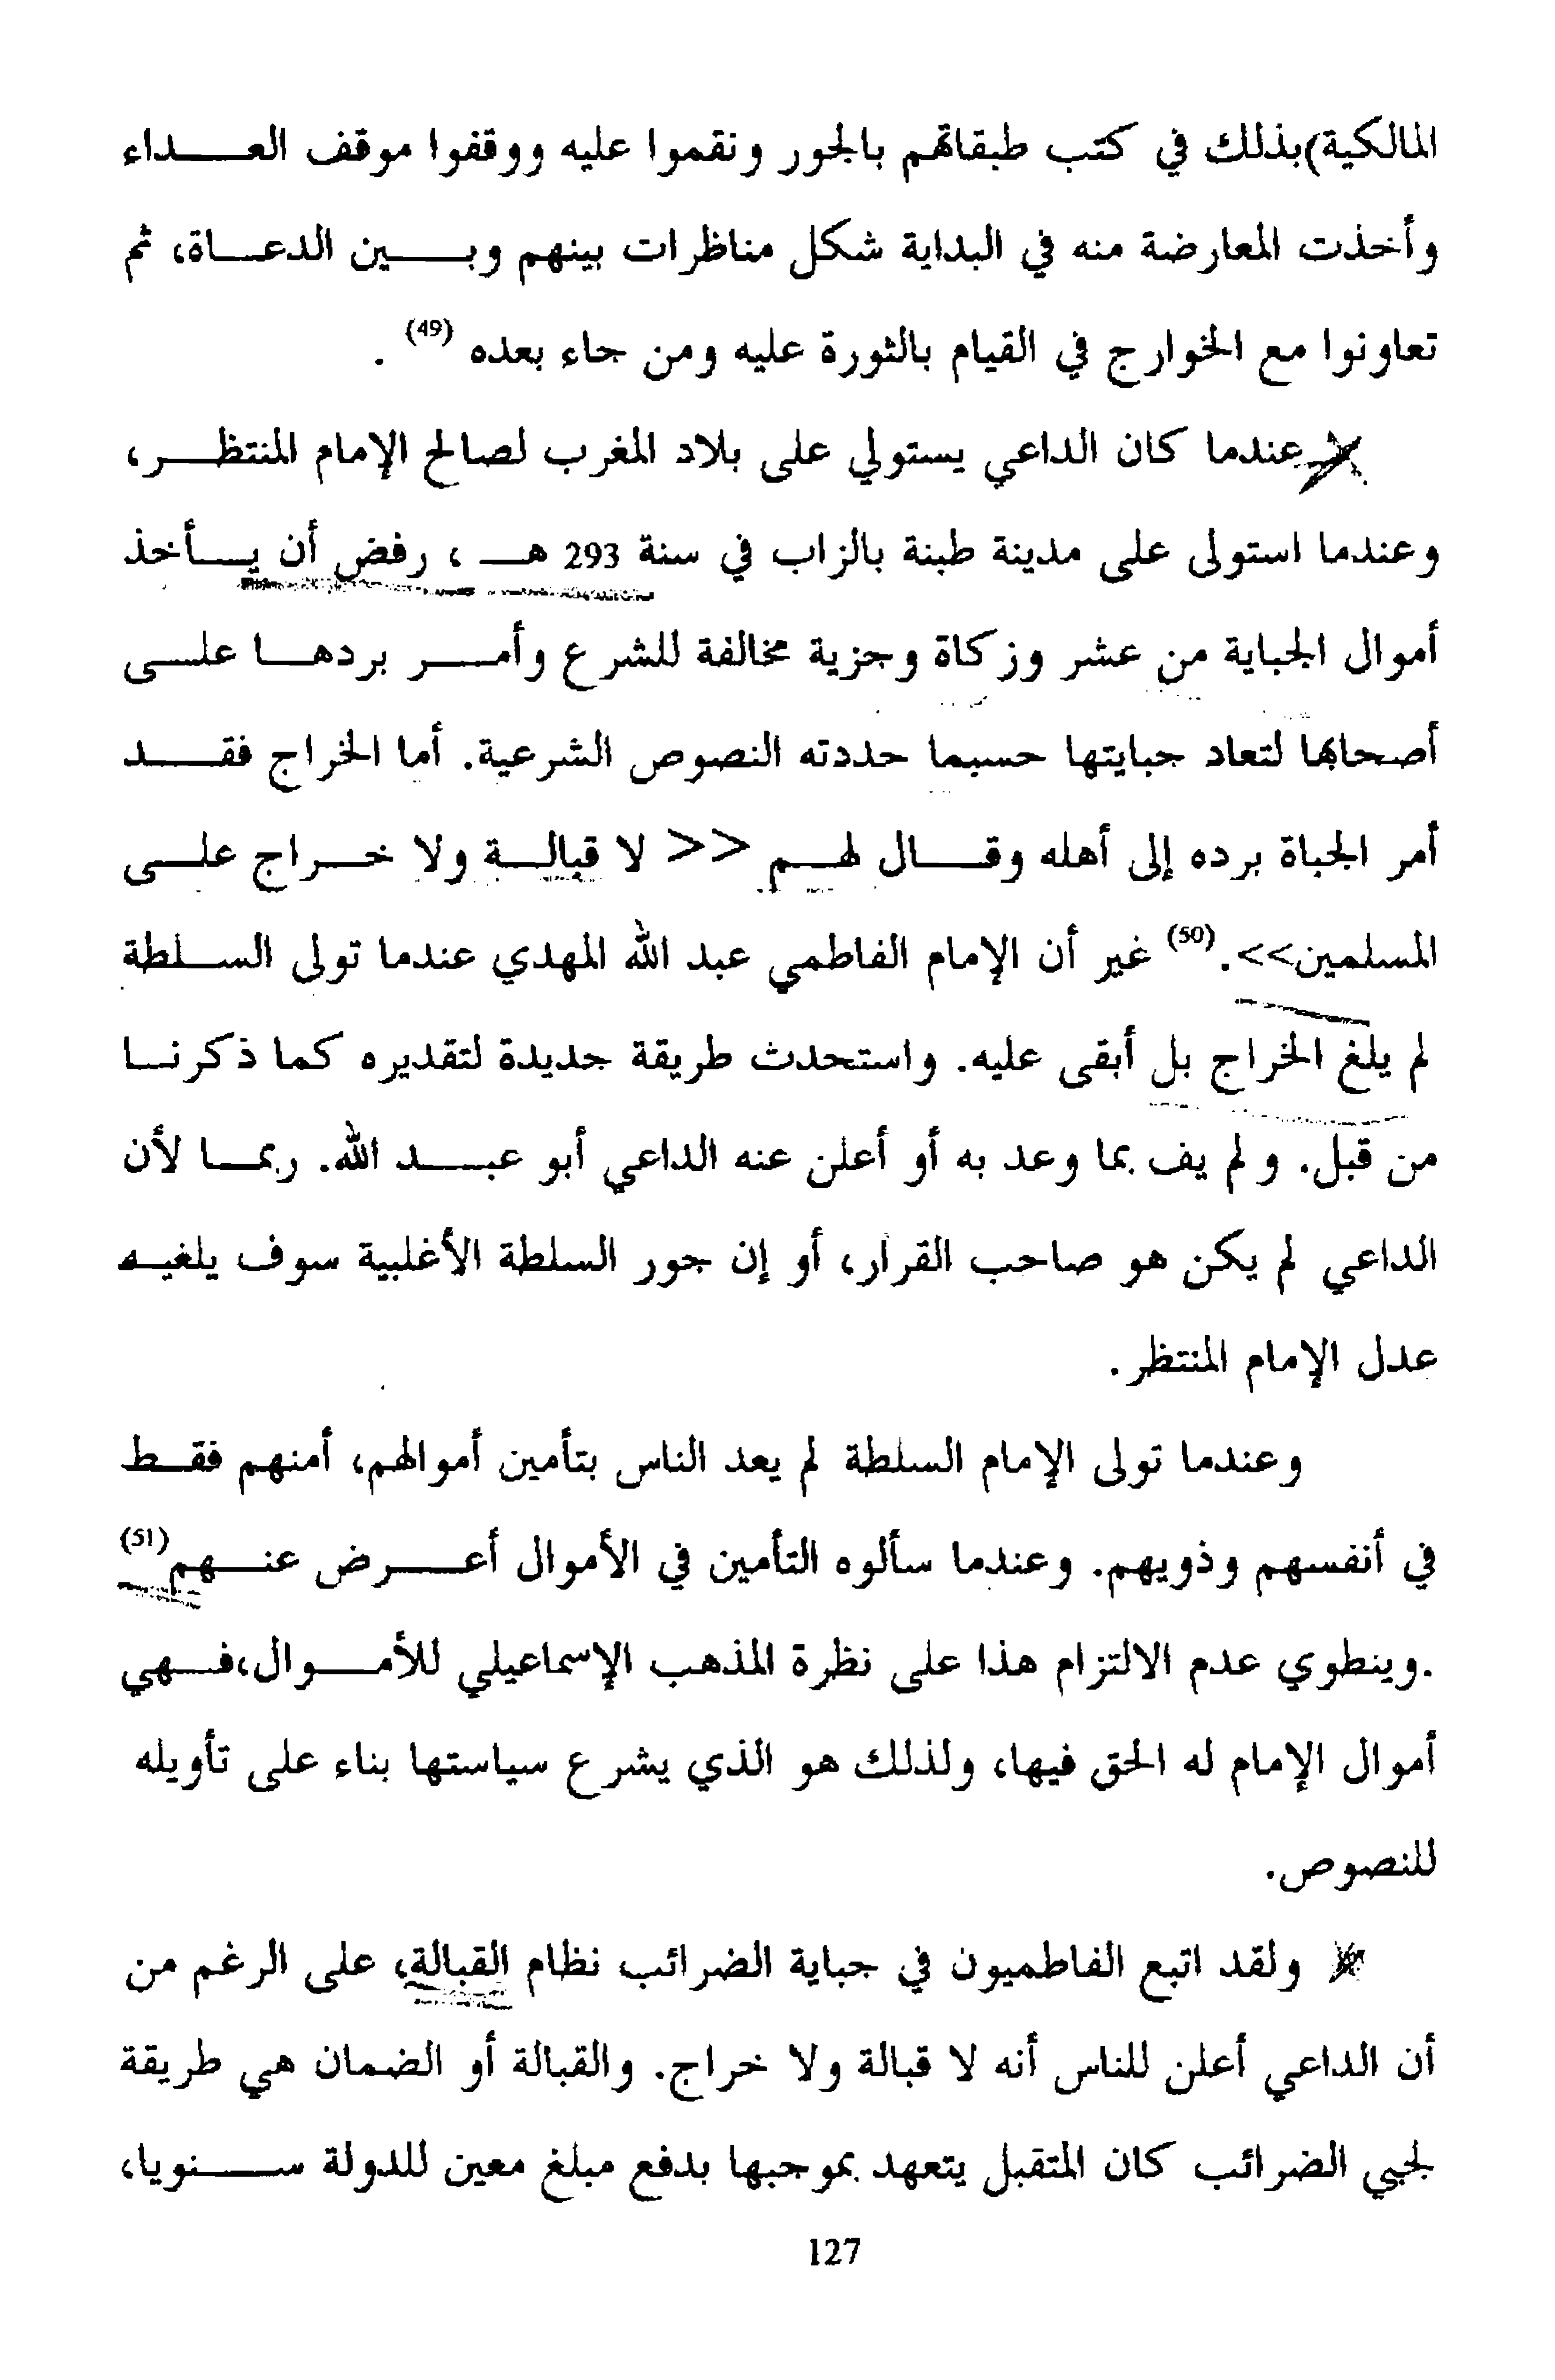 المالكية)بذلك في كتب طبقاتهم بالجور ونقموا عليه ووقفوا موقف العداء
وأخذت المعارضة منه في البداية شكل مناظرات بينهم وبين الدعاة، ثم
تعاونوا مع الخوارج في القيام بالثورة عليه ومن جاء بعده (49) .
عندما كان الداعي يستولي على بلاد المغرب لصالح الإمام المنتظر،
وعندما استولى على مدينة طبنة بالزاب في سنة 293 هـ ، رفض أن يأخذ
أموال الجباية من عشر وزكاة وجزية مخالفة للشرع وأمر بردها على
أصحابها لتعاد جبايتها حسبما حددته النصوص الشرعية. أما الخراج فقد
أمر الجباة برده إلى أهله وقال لهم << لا قبالة ولا خراج على
المسلمين>>. (50) غير أن الإمام الفاطمي عبد الله المهدي عندما تولى السلطة
لم يلغ الخراج بل أبقى عليه. واستحدث طريقة جديدة لتقديره كما ذكرنا
من قبل. و لم يف بما وعد به أو أعلن عنه الداعي أبو عبد الله. ربما لأن
الداعي لم يكن هو صاحب القرار، أو إن جور السلطة الأغلبية سوف يلغيه
عدل الإمام المنتظر.
وعندما تولى الإمام السلطة لم يعد الناس بتأمين أموالهم، أمنهم فقط
في أنفسهم وذويهم. وعندما سألوه التأمين في الأموال أعرض عنهم(51)
.وينطوي عدم الالتزام هذا على نظرة المذهب الإسماعيلي للأموال،فهي
أموال الإمام له الحق فيها، ولذلك هو الذي يشرع سياستها بناء على تأويله
للنصوص.
* ولقد اتبع الفاطميون في جباية الضرائب نظام القبالة، على الرغم من
أن الداعي أعلن للناس أنه لا قبالة ولا خراج. والقبالة أو الضمان هي طريقة
لجبي الضرائب كان المتقبل يتعهد بموجبها بدفع مبلغ معين للدولة سنويا،
127